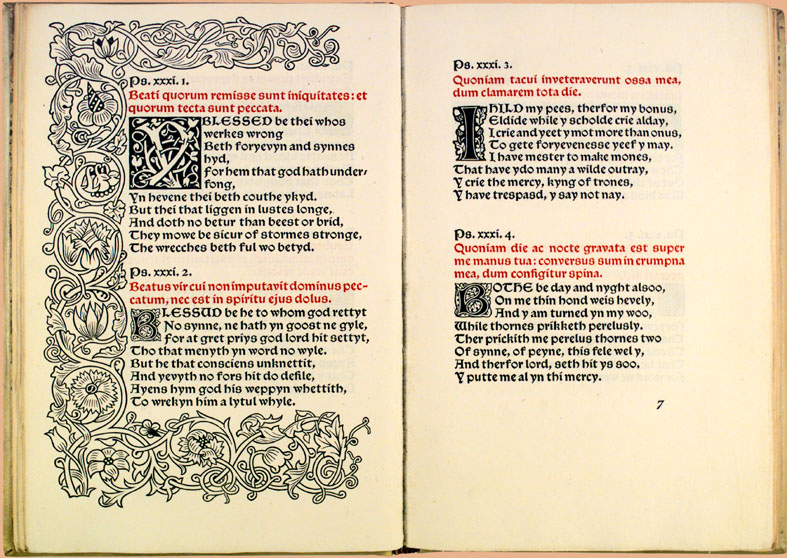 Ps. xxxi. 1.
Beati quorum remisse sunt iniquitates: et
quorum tecta sunt peccata.
YBLESSED be thei whos
werkes wrong
Beth foryevyn and synnes
hyd,
For hem that god hath under-
fong,
Yn hevene thei beth couthe ykyd.
But thei that liggen in lustes longe,
And doth no betur than beest or brid,
They move be sicur of stormes stronge,
The wrecches beth ful wo betyd.
Ps. xxxi. 2.
Beatus vir cui non imputavit dominus pec-
catum, nec est in spiritu ejus dolus.
BLESSUD be he to whom god rettyt
No synne, ne hath yn goost ne gyle,
For at gret priys god lord hit settyt,
Tho that menyth yn word no wyle.
But he that consciens unknettit,
And yevyth no fors hit do defile,
Ayens hym god his weppyn whettith,
To wrekyn him a lytul whyle.
Ps. xxxi. 3.
Quoniam tacui inveteraverunt ossa mea,
dum clamarem tota die.
I HILD my pees, therfor my bonus,
Eldide while y scholde crie alday,
I crie and yeet y mot more than onus,
To gete foryevenesse yeef y may.
I have mester to make mones,
That have ydo many a wilde outray,
Y crie the mercy, kyng of trones,
Y have trespasd, y say not nay.
Ps. xxxi. 4.
Quoniam die ac nocte gravata est super
me manus tua: conversus sum in erumpna
mea, dum configitur spina.
BOTHE be day and nyght alsoo,
On me thin hond weis hevely,
And y am turned yn my woo,
While thornes prikketh perelusly.
Ther prickith me perelus thornes two
Of synne, of peyne, this fele wel y,
And therfor lord, seth hit ys soo,
Y putte me al yn thi mercy.
7